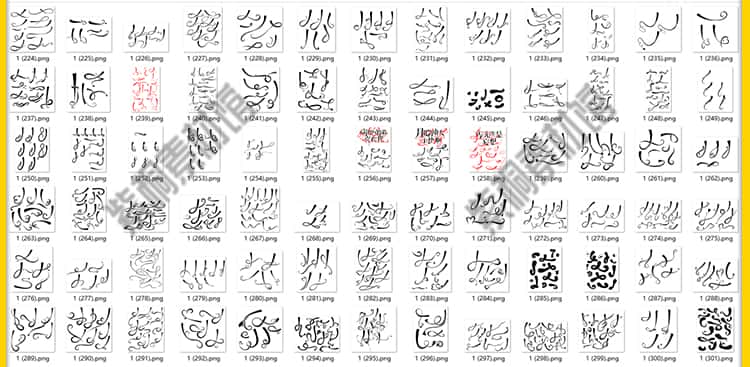 1 (224).png 1 (225).png 1 (226).png 1 (227).png 1 (228).png 1 (229).png 1 (230).png 1 (231).png 1 (232).png 1 (233).png 1 (234).png 1 (235).png 1 (236).png
1 (237).png 1 (238).png 1 (239).png 1 (240).png 1 (241).png 1 (242).png 1 (243).png 1 (244).png 1 (245).png 1 (246).png 1 (247).png 1 (248).png 1 (249).png
1 (250).png 1 (251).png 1 (252).png 1 (253).png 1 (254).png 1 (255).png 1 (256).png 1 (257).png 1 (258).png 1 (259).png 1 (260).png 1 (261).png 1 (262).png
1 (263).png 1 (264).png 1 (265).png 1 (266).png 1 (267).png 1 (268).png 1 (269).png 1 (270).png 1 (271).png 1 (272).png 1 (273).png 1 (274).png 1 (275).png
1 (276).png 1 (277).png 1 (278).png 1 (279).png 1 (280).png 1 (281).png 1 (282).png 1 (283).png 1 (284).png 1 (285).png 1 (286).png 1 (287).png 1 (288).png
1 (289).png 1 (290).png 1 (291).png 1 (292).png 1 (293).png 1 (294).png 1 (295).png 1 (296).png 1 (297).png 1 (298).png 1 (299).png 1 (300).png 1 (301).png